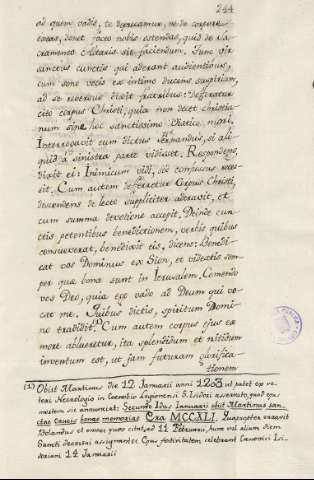 244
ad quem vadis, te deprecamur, ne de corpore
exeas, donec facto nobis ostendas, quid de Sa-
cramento Altaris sit faciendum. Tunc vir
sanctus cunctis qui aderant audientibus,
cum sono vocis ex intimo ducens suspirium,
ad se reversus dixit fratribus: deferatur
cito corpus Christi, quia non decet christia-
num sine hoc sanctissimo Viatico mori.
Interrogavit eum dictus Fernandus, si ali-
quid a sinistra parte vidisset. Respondens
dixit ei: Inimicum vidi, sed confusus reces-
sit. Cum autem deferretur Corpus Christi,
descendens de lecto suppliciter adoravit, et
cum summa devotione accepit. Deinde cun-
ctis petentibus benedictionem, verbis quibus
consueverat, benedixit eis, dicens: Benedi-
cat vos Dominus ex Sion, et videatis sem-
per qua bona sunt in Ierusalem. Comendo
vos Deo, quia ego vado ad Deum qui vo-
cat me. Quibus dictis, spiritum Domi-
no tradidit. (1) Cum autem corpus ejus ex
more ablueretur, ita splendidum et nitidum
inventum est, ut jam futuram glorifica-
tionem
(1) Obiit Martinus die 12 Januarii anni 1203 ut patet ex ve-
teri Necrologio in Coenobio Legionensi S. Isidori asservato, quod ejus
mortem sic annunciat: Secundo Idus Ianuarii obiit Martinus san-
ctae Crucis bonae memoriae Era MCCXLI.
Bolandus et omnes quos citat, ad 11 Februarii, hunc vel alium diem
Sancti decessui assignantes. Ejus festivitatem celebrant Canonici Isi-
doriani 14 Januarii